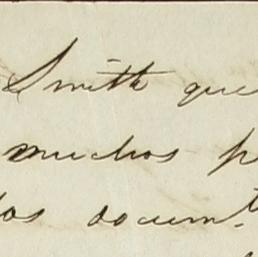 Smith que
muchos p
los docum.t